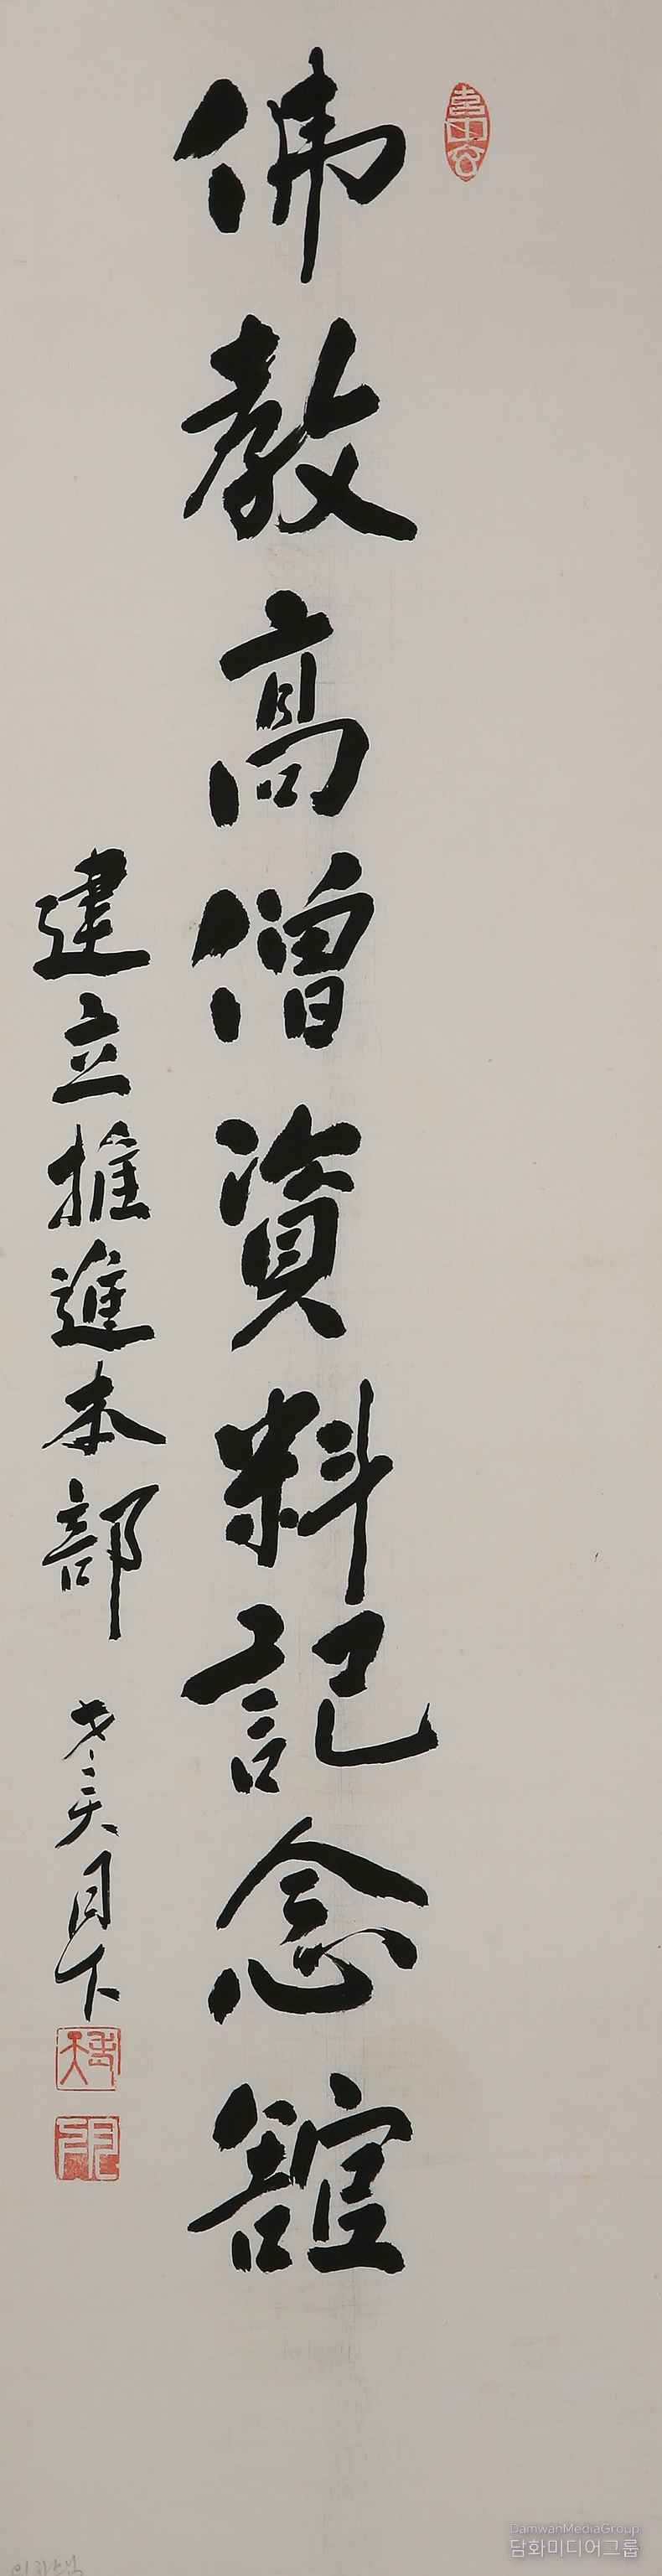 佛教高僧資料記念舘
建立推進本部
老天月下
DamwanMediaGroup
담화미디어그룹